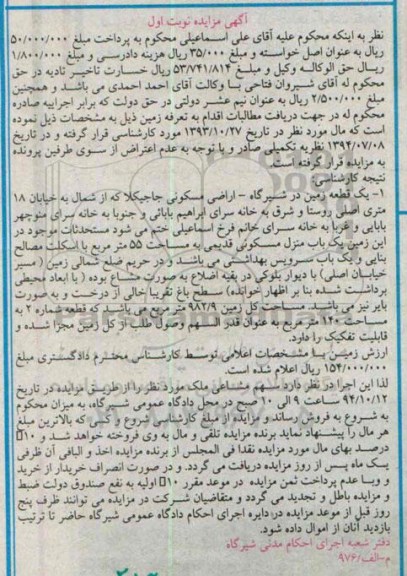 آگهی مزایده نوبت اول
نظر به اینکه محکوم علیه آقای علی اسماعیلی محکوم به پرداخت مبلغ ۵۰/۰۰۰/۰۰۰
ریال به عنوان اصل خواسته و مبلغ ۳۵/۰۰۰ ریال هزینه دادرسی و مبلغ ۱/۸۰۰/۰۰۰
ریال حق الوکاله وکیل و مبلغ ۵۳/۷۴۱/۸۱۴ ریال خسارت تاخیر تادیه در حق
محکوم له آقای شیروان فتاحی با وکالت آقای احمد احمدی می باشد و همچنین
مبلغ ۲/۵۰۰/۰۰۰ ریال به عنوان نیم عشر دولتی در حق دولت که برابر اجراییه صادره
محکوم له در جهت دریافت مطالبات اقدام به تعرفه زمین ذیل به مشخصات ذیل نموده
است که مال مورد نظر در تاریخ ۱۳۹۳/۱۰/۲۷ مورد کارشناسی قرار گرفته و در تاریخ
۱۳۹۴/۰۷/۰۸ نظریه تکمیلی صادر و با توجه به عدم اعتراض از سوی طرفین پرونده
به مزایده قرار گرفته است.
نتیجه کارشناسی:
۱- یک قطعه زمین در شیرگاه - اراضی مسکونی جاجیکلا که از شمال به خیابان ۱۸
متری اصلی روستا و شرق به خانه سرای ابراهیم بابائی و جنوبا به خانه سرای منوچهر
بابایی و غربا به خانه سرای خانم فرخ اسماعیلی ختم می شود مستحدثات موجود در
این زمین یک باب منزل مسکونی قدیمی به مساحت ۵۵ متر مربع با اسکلت مصالح
بنایی و یک باب سرویس بهداشتی می باشد و در حریم ضلع شمالی زمین (مسیر
خیابان اصلی) با دیوار بلوکی در بقیه اضلاع به صورت مشاع بوده (با ابعاد محیطی
برداشت شده بنا بر اظهار خوانده) سطح باغ تقریبا خالی از درخت و به صورت
بایر نیز می باشد. مساحت کل زمین ۹۸۲/۹ متر مربع می باشد که قطعه شماره ۲ به
مساحت ۱۲۰ متر مربع به عنوان قدر السهم وصول طلب از کل زمین مجزا شده و
قابلیت تفکیک را دارد.
ارزش زمین با مشخصات اعلامی توسط کارشناس محترم دادگستری مبلغ
۱۵۴/۰۰۰/۰۰۰ ریال اعلام شده است.
لذا این اجرا در نظر دارد سهم مشاعی ملک مورد نظر را از طریق مزایده در تاریخ
۹۴/۱۰/۱۲ ساعت ۹ الی ۱۰ صبح در محل دادگاه عمومی شیرگاه، به میزان محکوم
به شروع به فروش رساند و مزایده از مبلغ کارشناسی شروع و کسی که بالاترین مبلغ
هر مال را پیشنهاد نماید برنده مزایده تلقی و مال به وی فروخته خواهد شد و ۱۰
درصد بهای مال مورد مزایده نقدا فی المجلس از برنده مزایده اخذ و الباقی آن ظرفی
یک ماه پس از روز مزایده دریافت می گردد. و در صورت انصراف خریدار از خرید
و ویا عدم پرداخت ثمن مزایده در موعد مقرر ۱۰ اولیه به نفع صندوق دولت ضبط
و مزایده باطل و تجدید می گردد و متقاضیان شرکت در مزایده می توانند ظرف پنج
روز قبل از موعد مزایده در دایره اجرای احکام دادگاه عمومی شیرگاه حاضر تا ترتیب
بازدید آنان از اموال داده شود.
دفتر شعبه اجرای احکام مدنی شیرگاه
م-الف/۹۷۶